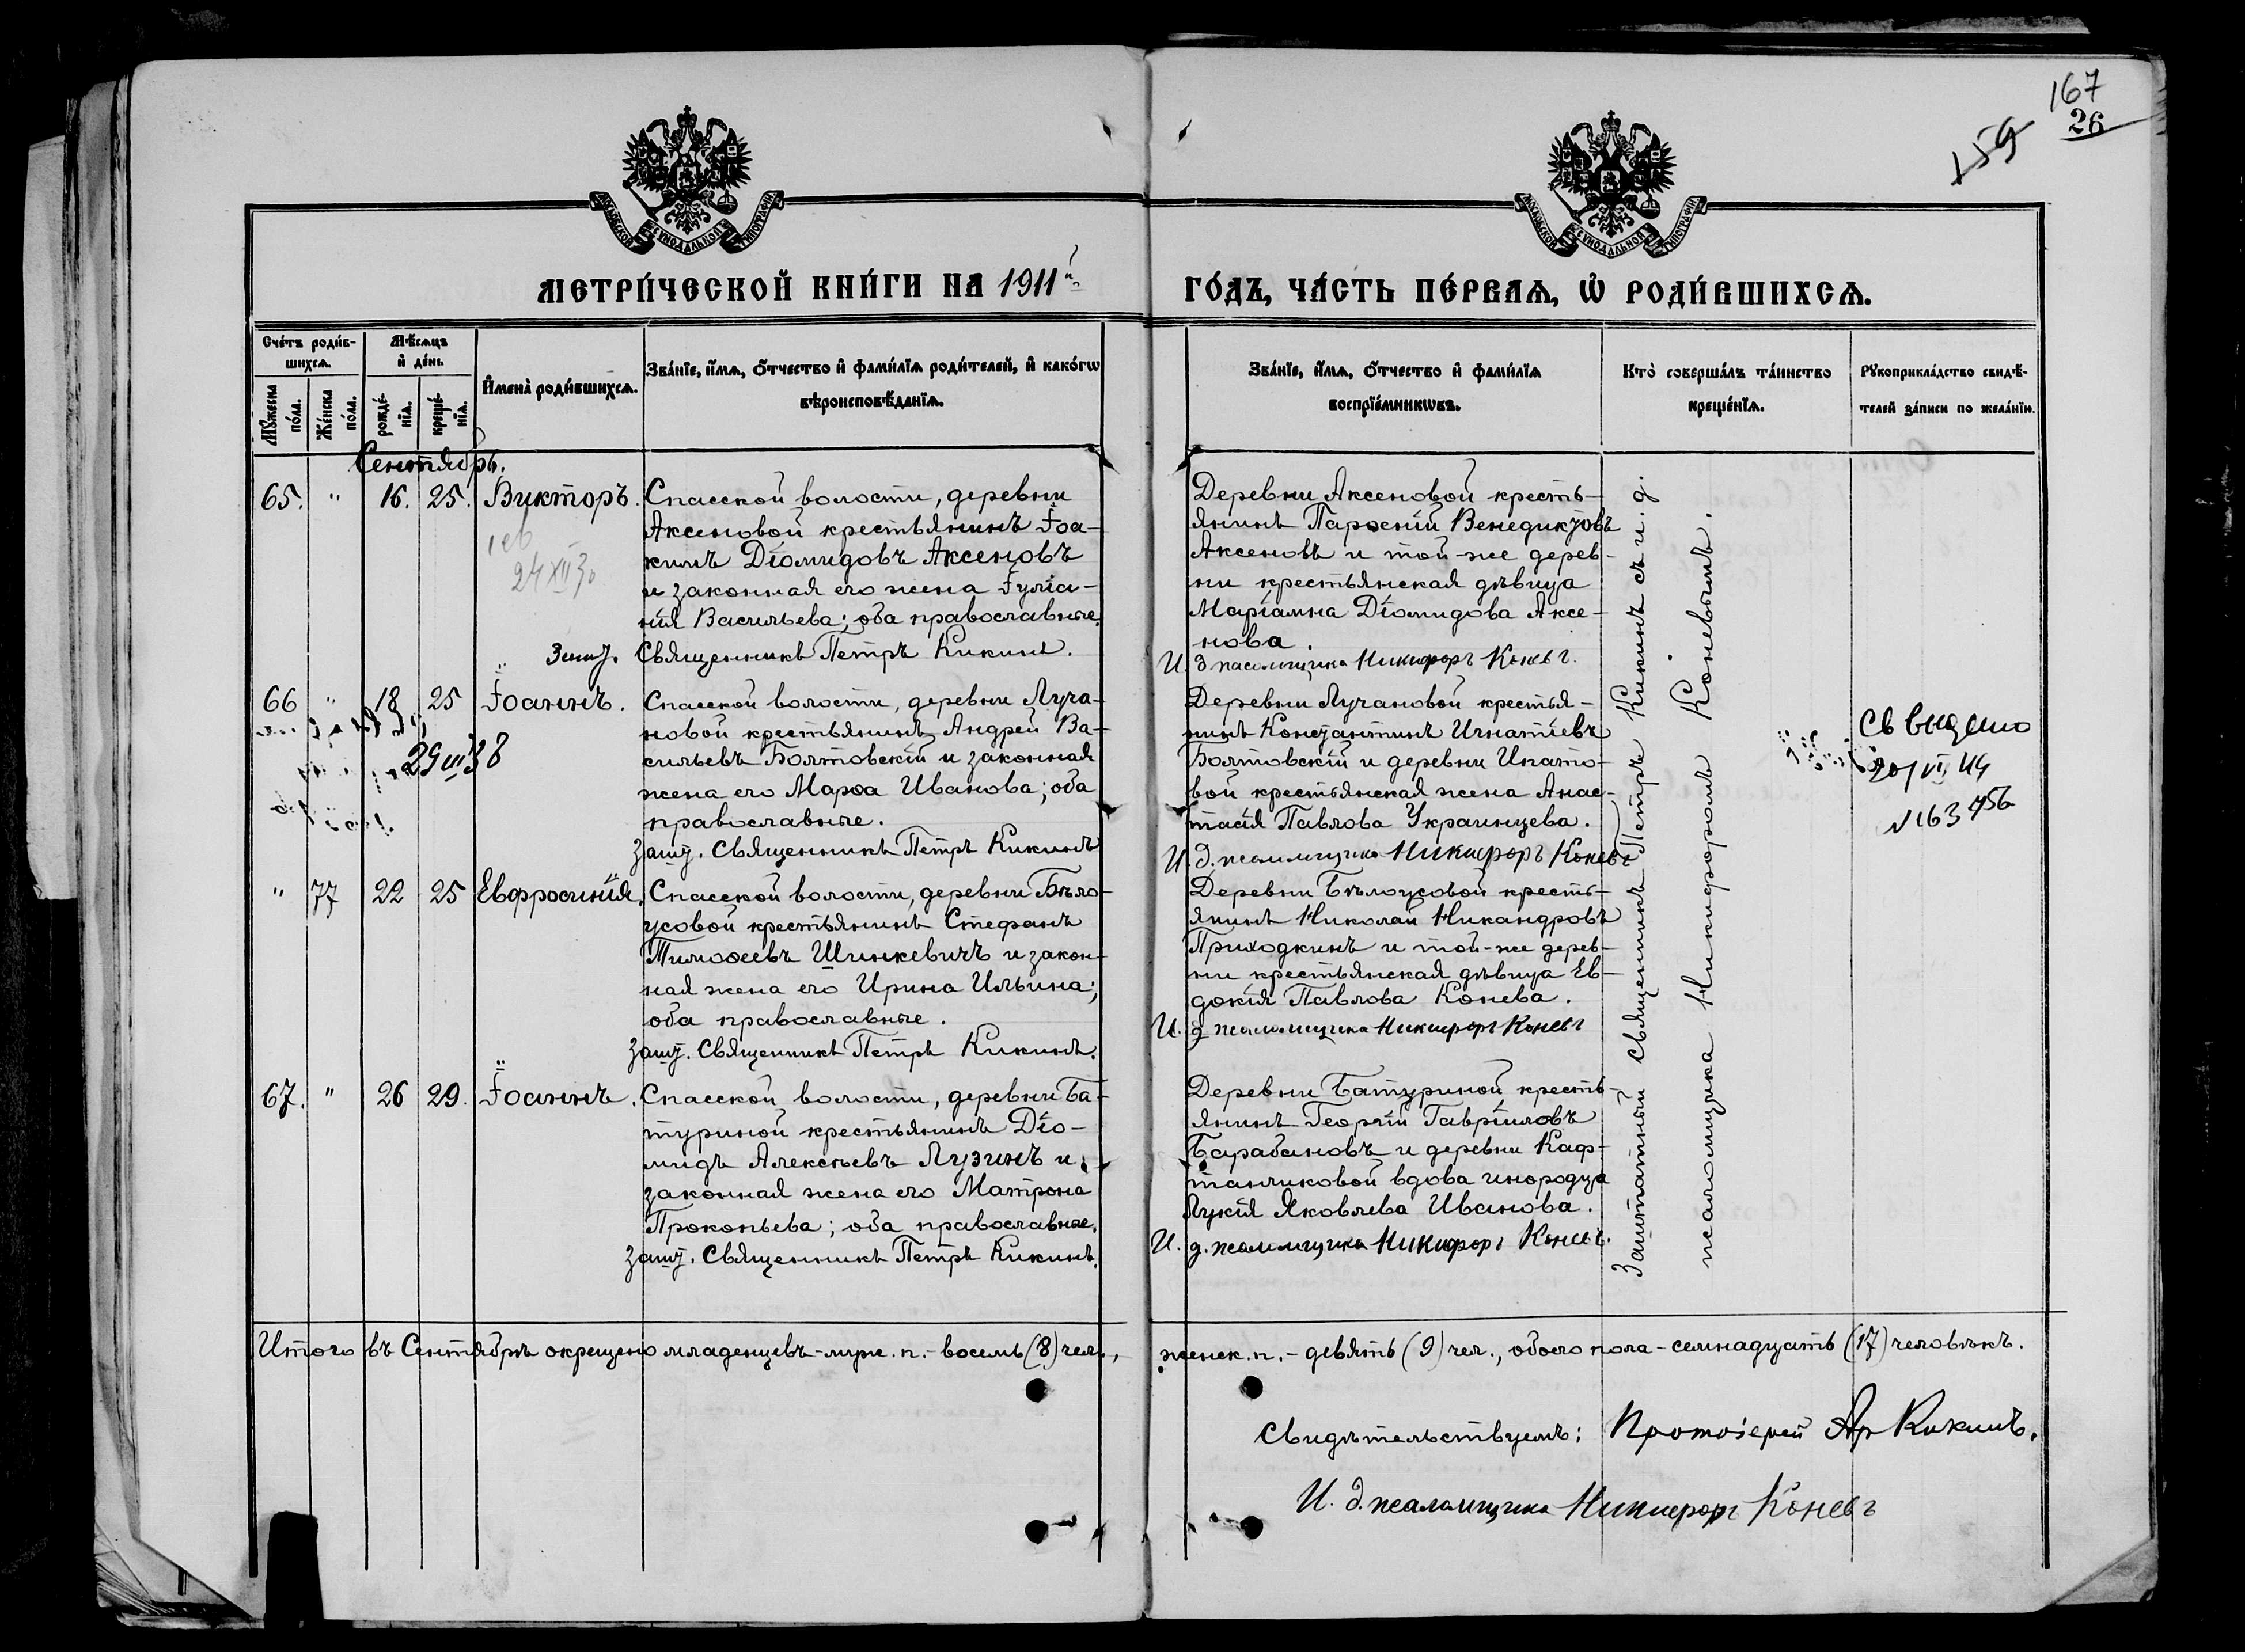 167
26
159
МОСКОВСКОЙ СѴНОДАЛЬНОЙ ТИПОГРАФІИ
МОСКОВСКОЙ СѴНОДАЛЬНОЙ ТИПОГРАФІИ
МЕТРИ́ЧЕСКОЙ КНИ́ГИ НА 1911й
ГО́ДЪ, ЧА́СТЬ ПЕ́РВАѦ, Ѡ҆ РОДИ́ВШИХСѦ.
Сче́тъ роди́в-
шихсѧ.
Мѣ́сѧцъ
и҆ де́нь.
Мꙋ́жеска по́ла.
Же́нска по́ла.
рожде́-
нїѧ.
креще́-
нїѧ.
И҆мена̀ роди́вшихсѧ.
Зва́нїе, и҆́мѧ, ѻ҆́тчество и҆ фами́лїѧ роди́телей, и҆ како́гѡ
вѣроисповѣ́данїѧ.
Зва́нїе, и҆́мѧ, ѻ҆́тчество и҆ фами́лїѧ
воспрїе́мникѡвъ.
Кто̀ соверша́лъ та́инство
креще́нїѧ.
Рꙋкоприкла́дство свидѣ́-
телей за́писи по жела́нїю.
Сентябрь.
65. " 16. 25. Викторъ.
Спасской волости, деревни
Аксеновой крестьянинъ Іоа-
кимъ Діомидовъ Аксеновъ
и законная его жена Іуліа-
нія Васильева; оба православные.
24 XII 30
Священникъ Петръ Кикинъ.
Деревни Аксеновой кресть-
янинъ Парѳеній Венедиктовъ
Аксеновъ и той-же дерев-
ни крестьянская дѣвица
Маріамна Діомидова Аксе-
нова.
И. д псаломщика Никифоръ Коневъ.
66 " 18 25 Іоаннъ.
29 III 38
Спасской волости, деревни Луча-
новой крестьянинъ Андрей Ва-
сильевъ Болтовскій и законная
жена его Марѳа Иванова; оба
православные.
Зашт. Священникъ Петръ Кикинъ
Деревни Лучановой крестья-
нинъ Константинъ Игнатіевъ
Болтовскій и деревни Ипато-
вой крестьянская жена Анас-
тасія Павлова Украинцева.
И. д. псаломщика Никифоръ Коневъ
Св выдано
20/VI 44
N 163456
" 77 22 25 Евфросинія.
Спасской волости, деревни Бѣло-
усовой крестьянинъ Стефанъ
Тимоѳеевъ Шинкевичъ и закон-
ная жена его Ирина Ильина;
оба православные.
Зашт. Священникъ Петръ Кикинъ.
Деревни Бѣлоусовой кресть-
янинъ Николай Никандровъ
Приходкинъ и той-же дерев-
ни крестьянская дѣвица Ев-
докія Павлова Конева.
И. д псаломщика Никифоръ Коневъ
67. " 26 29. Іоаннъ.
Спасской волости, деревни Ба-
туриной крестьянинъ Діо-
мидъ Алексѣевъ Лузинъ и
законная жена его Матрона
Прокопьева; оба православные.
Зашт. Священникъ Петръ Кикинъ.
Деревни Батуриной кресть-
янинъ Георгій Гавріиловъ
Барабановъ и деревни Каф-
танчиковой вдова инородца
Лукія Яковлева Иванова.
И. д. псаломщика Никифоръ Коневъ.
Заштатный священникъ Петръ Кикинъ съ и. д.
псаломщика Никифоромъ Коневымъ.
Итого въ Сентябрѣ окрещено младенцевъ-муж. п.- восемь (8) чел.,
женск. п.- девять (9) чел., обоего пола - семнадцать (17) человѣкъ.
Свидѣтельствуемъ: Протоіерей Ар Кикинъ.
И. д. псаломщика Никифоръ Коневъ